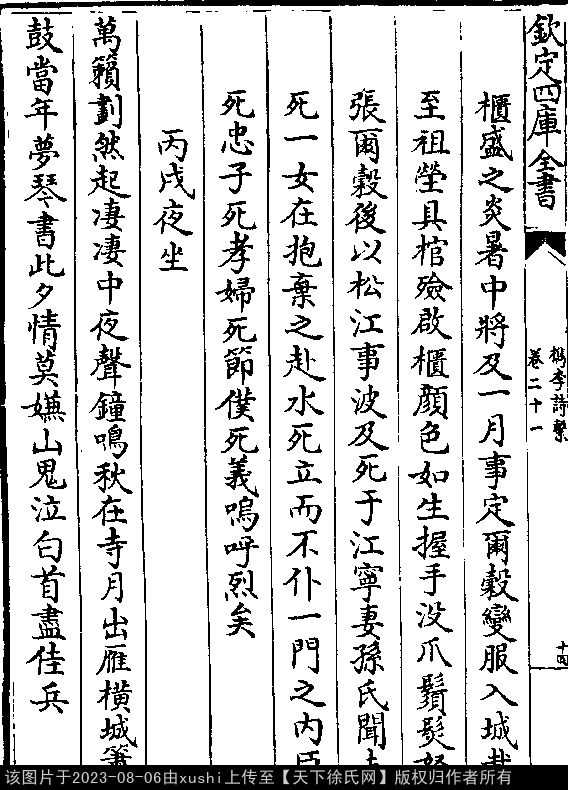 欽定四庫全書
檇李詩繫
卷二十一
十四
櫃盛之炎暑中將及一月事定爾穀變服入城
至祖塋具棺殮啟櫃顔色如生握手没爪鬚髮
張爾穀後以松江事波及死于江寧妻孫氏聞
死一女在抱棄之赴水死立而不仆一門之内臣
死忠子死孝婦死節僕死義嗚呼烈矣
丙戌夜坐
萬籟劃然起凄凄中夜聲鐘鳴秋在寺月出雁橫城
鼓當年夢琴書此夕情莫嫌山鬼泣白首盡佳兵
该图片于2023-08-06由xushi上传至【天下徐氏网】版权归作者所有